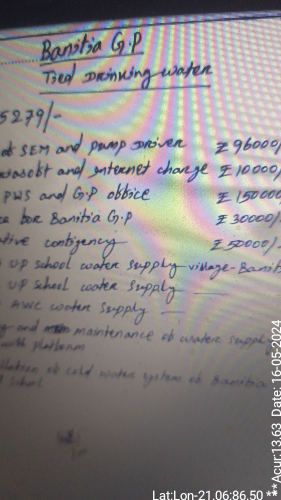 Banitia G.P
Tied Drinking water
5279/-
of SEM and pump Driver ₹ 96000/
and internet charge ₹ 10000/
PWS and G.P obbice ₹ 150000
ce bor Banitia G.P ₹ 30000/
ative contigency ₹ 50000/-
UP school water supply village-Banit
UP school water supply —
AWC water supply —
and maintenance ob water suppl
with platform
llation ob cold water system ob Banitia
school
Lat:Lon-21.06:86.50
**Acur:13.63 Date: 16-05-2024